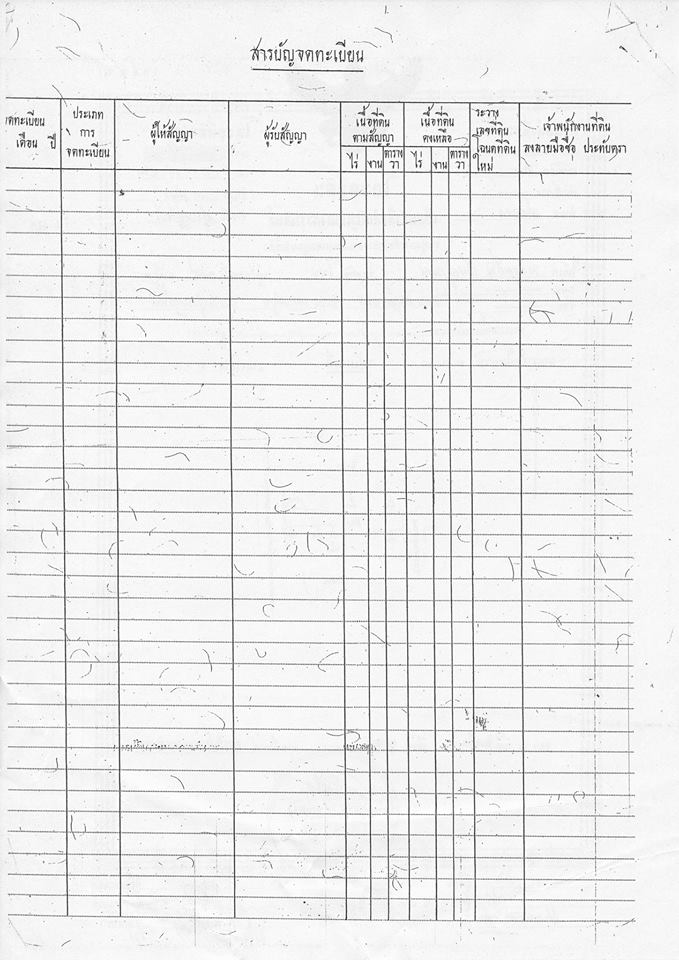 สารบัญจดทะเบียน
จดทะเบียน
เดือน ปี
ประเภท
การ
จดทะเบียน
ผู้ให้สัญญา
ผู้รับสัญญา
เนื้อที่ดิน
ตามสัญญา
ไร่ งาน ตาราง
วา
เนื้อที่ดิน
คงเหลือ
ไร่ งาน ตาราง
วา
ระวาง
เลขที่ดิน
โฉนดที่ดิน
ใหม่
เจ้าพนักงานที่ดิน
ลงลายมือชื่อ ประทับตรา